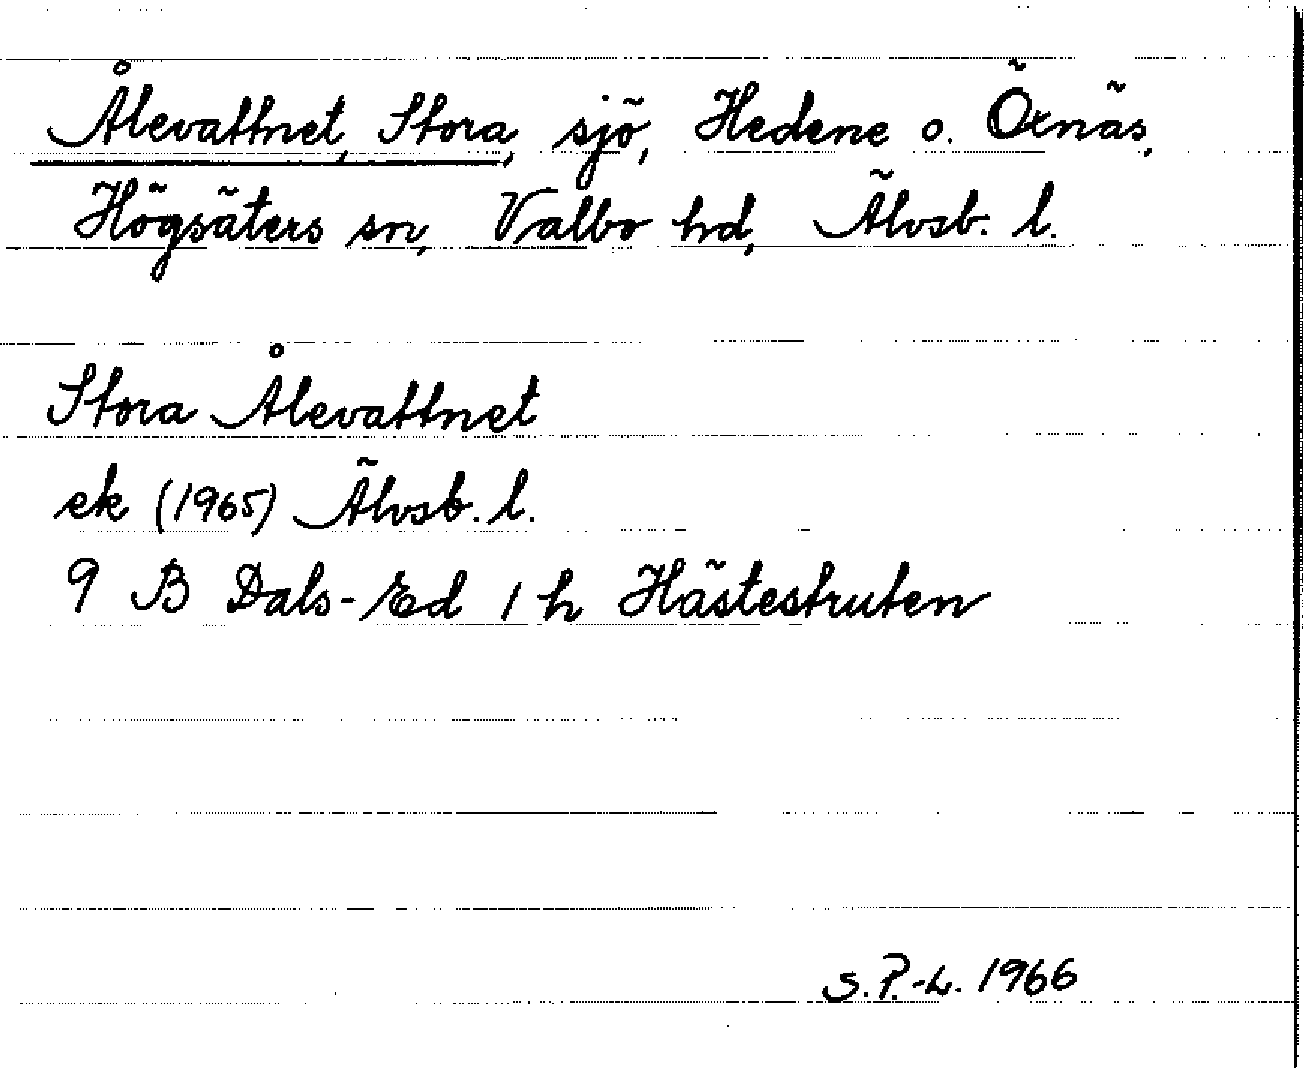 Ålevattnet, Stora, sjö, Hedene o. Örnäs,
Högsäters sn, Valbo hd, Älvsb. l.
Stora Ålevattnet
ek (1965) Älvsb. l.
9 B Dals-Ed 1 h Hästestruten
S.P.-L. 1966